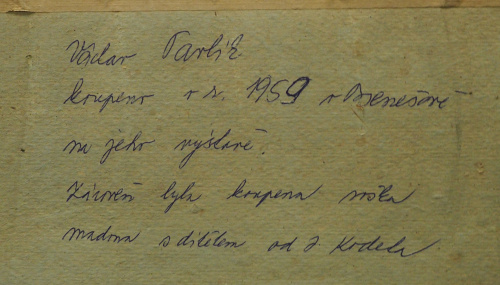 Václav Pavlík
koupeno v r. 1959 v Benešově
na jeho výstavě.
Zároveň byla koupena soška
madona s dítětem od J. Kodeta